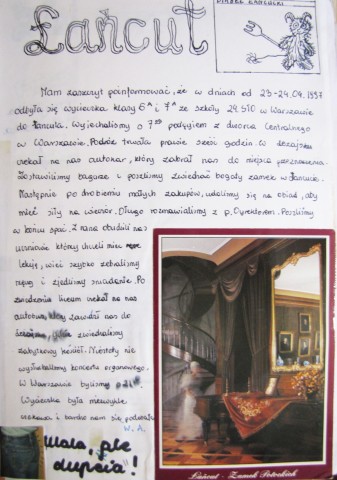 Łańcut
DIABEŁ ŁAŃCUCKI
Mam zaszczyt poinformować, że w dniach od 23-24.04.1997
odbyła się wycieczka klasy 6^A i 7^A ze szkoły 24.STO w Warszawie
do Łańcuta. Wyjechaliśmy o 7 pociągiem z dworca Centralnego
w Warszawie. Podróż trwała prawie sześć godzin. W Leżajsku
czekał na nas autokar, który zabrał nas do miejsca przeznaczenia.
Zostawiliśmy bagaże i poszliśmy zwiedzać bogaty zamek w Łańcucie.
Następnie po zrobieniu małych zakupów, udaliśmy się na obiad, aby
mieć siły na wieczór. Długo rozmawialiśmy z p. Dyrektorem. Poszliśmy
w końcu spać. Z rana obudzili nas
uczniowie którzy chcieli mieć
lekcje, więc szybko zebraliśmy
się i zjedliśmy śniadanie. Po
zwiedzeniu liceum czekał na nas
autobus, który zawiózł nas do
zwiedzaliśmy
zabytkowy kościół. Niestety nie
wysłuchaliśmy koncertu organowego.
W Warszawie byliśmy
Wycieczka była niezwykle
ciekawa i bardzo nam się podobała.
W. A.
Mała, ale
dupcia"!
Łańcut - Zamek Potockich